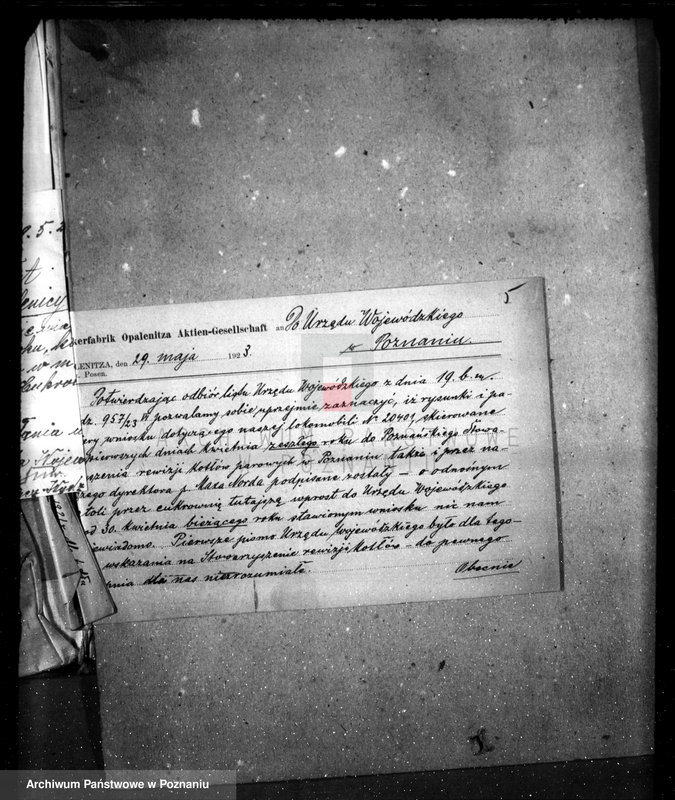 5
kerfabrik Opalenitza Aktien-Gesellschaft an Do Urzędu Wojewódzkiego
w Poznaniu.
LENITZA, den 29. maja 1923.
Posen.
Potwierdzając odbiór listu Urzędu Wojewódzkiego z dnia 19. b. m.
dz. 957/23 pozwalamy sobie uprzejmie zaznaczyć, iż rysunki i pa-
ery wniosku dotyczącego naszej lokomobili № 20401, skierowane
pierwszych dniach kwietnia zeszłego roku do Poznańskiego Stowa-
szenia rewizji kotłów parowych w Poznaniu także i przez na-
zego dyrektora p. Maxa Norda podpisane zostały - o odnośnym
toli przez cukrownię tutajszą wprost do Urzędu Wojewódzkiego
od 30. kwietnia bieżącego roku stawionym wniosku nic nam
iewiadomo. Pierwsze pismo Urzędu Wojewódzkiego było dla tego-
wskazania na Stowarzyszenie rewizji kotłów - do pewnego
pnia dla nas niezrozumiałe.
Obecnie
9.5.2
enicy
ARCHIWUM PAŃSTWOWE
W POZNANIU
Archiwum Państwowe w Poznaniu